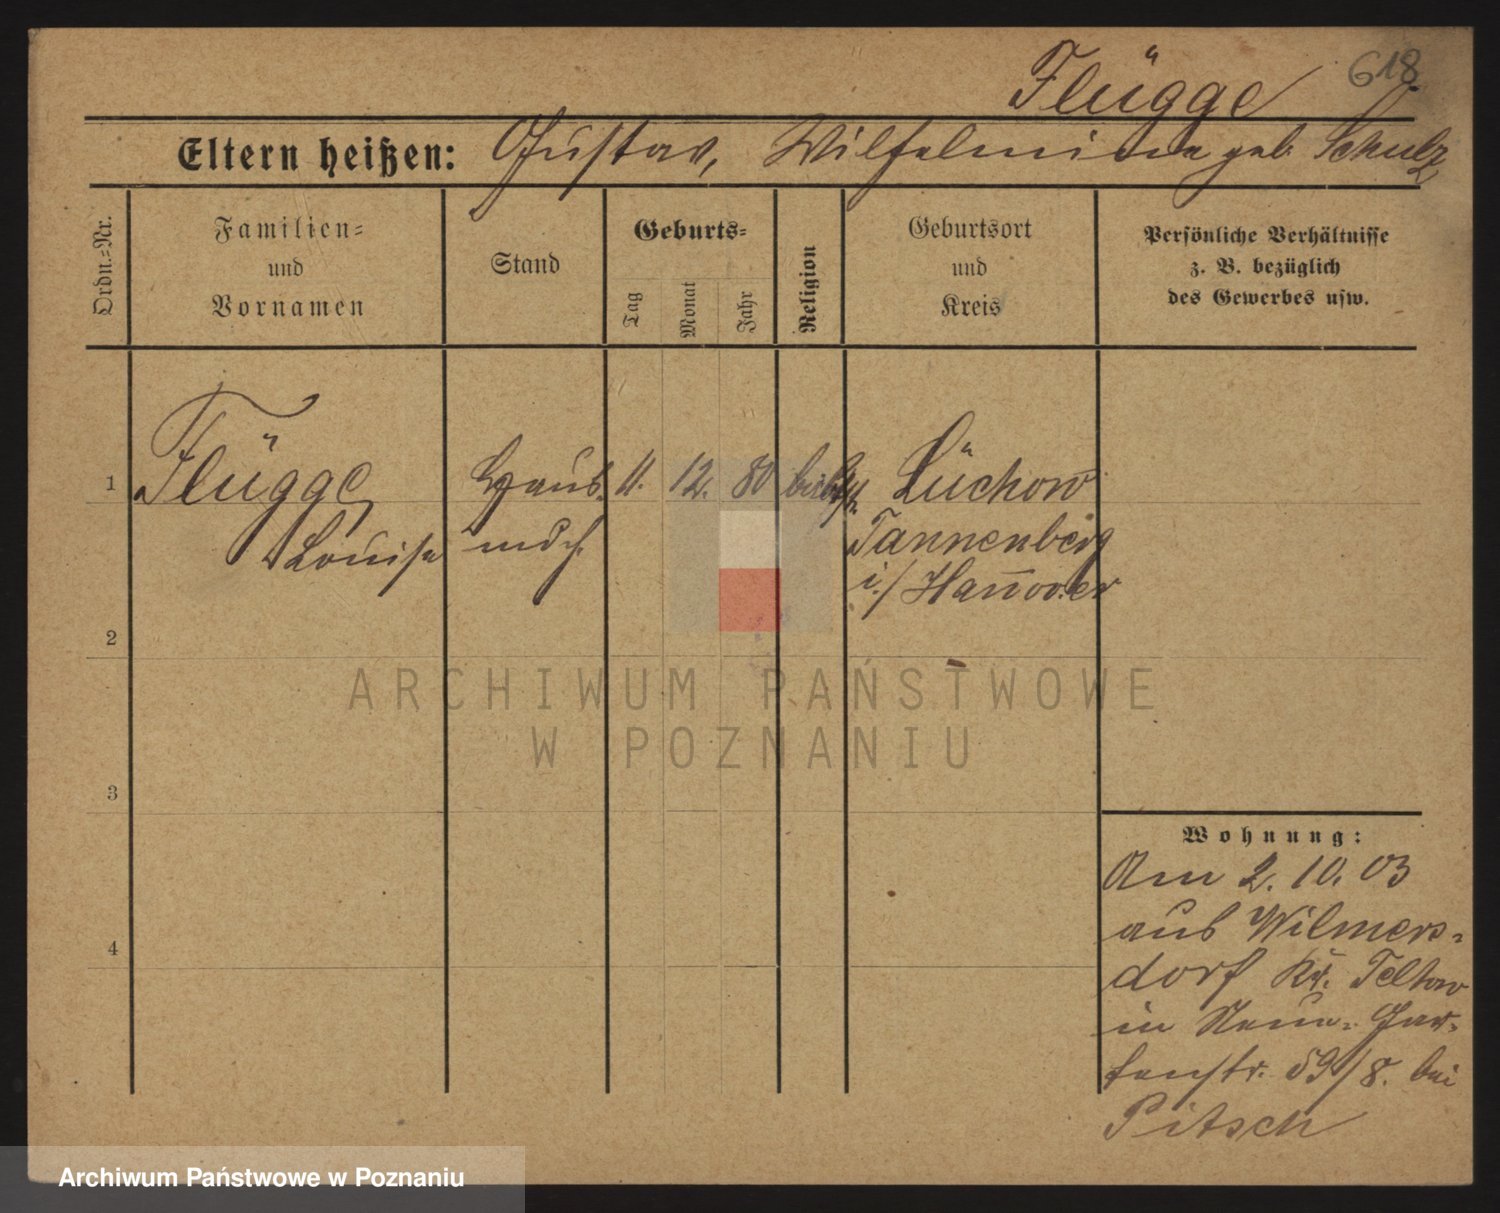 Flügge 618
Eltern heißen: Gustav, Wilhelmine geb. Schulz
Ordn.-Nr.
Familien- und Vornamen
Stand
Geburts-
Tag
Monat
Jahr
Religion
Geburtsort und Kreis
Persönliche Verhältnisse
z. B. bezüglich
des Gewerbes usw.
1 Flügge Haus- 11. 12. 80 Lüchow
Louise mdch. Tannenberg
i./Hannover
2
3
4
Wohnung:
Am 2. 10. 03
aus Wilmers-
dorf Kr. Teltow
in Neue-Gar-
tenstr. 59/8. bei
Pitsch
ARCHIWUM PAŃSTWOWE
W POZNANIU
Archiwum Państwowe w Poznaniu